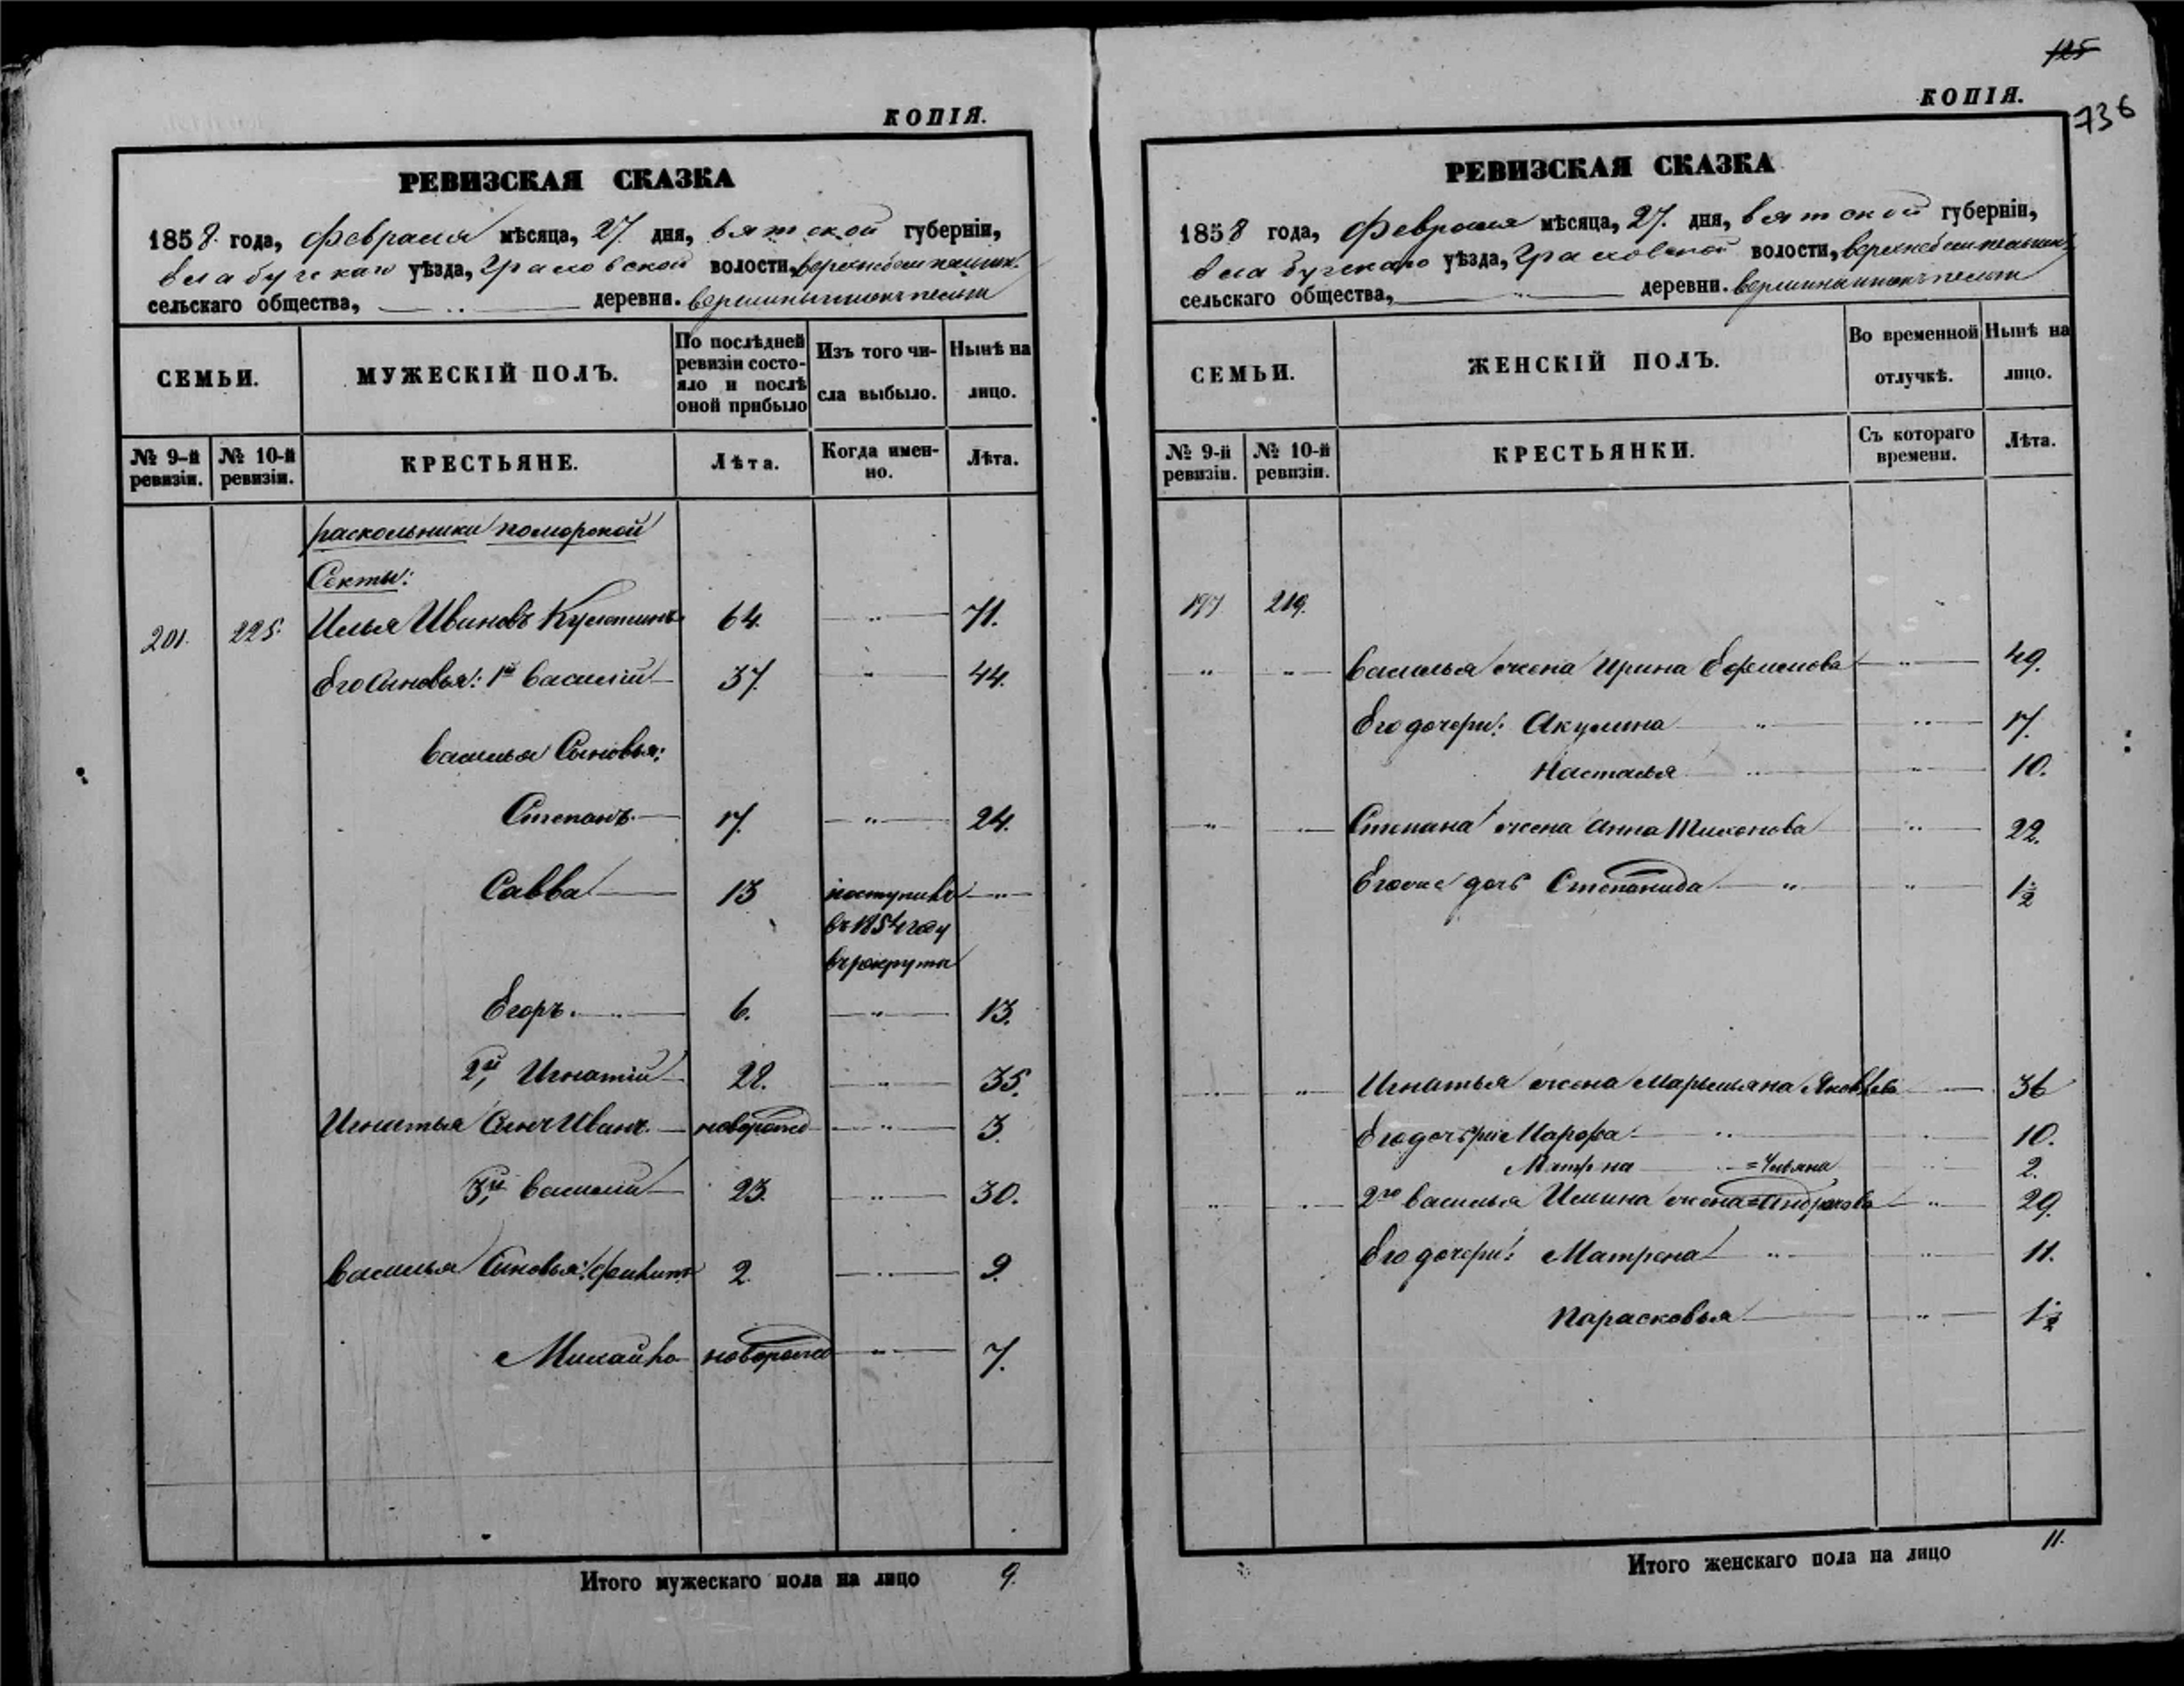 КОПІЯ.
РЕВИЗСКАЯ СКАЗКА
1858. года, февраля мѣсяца, 27. дня, вятской губерніи,
елабугскаго уѣзда, граховской волости,
сельскаго общества, — „ — деревни.
СЕМЬИ.
МУЖЕСКІЙ ПОЛЪ.
По послѣдней ревизіи состояло и послѣ оной прибыло
Изъ того числа выбыло.
Нынѣ на лицо.
№ 9-й ревизіи.
№ 10-й ревизіи.
КРЕСТЬЯНЕ.
Лѣта.
Когда именно.
Лѣта.
раскольники поморской
Секты:
201. 225. Илья Ивановъ 64. — „ — 71.
Его Сыновья: 1й Василій — 37. „ 44.
Василья Сыновья:
Степанъ — 17. — „ — 24.
Савва — 13 поступилъ — „ —
въ 1854 году
въ рекруты
Егоръ. — „ — 6. — „ — 13.
2й, Игнатій — 28. — „ — 35.
Игнатья Сынъ Иванъ. — новорожд — „ — 3.
3й, Василій — 23. — „ — 30.
Василья Сыновья: 2. — „ — 9.
Михайло — новорожд — „ — 7.
Итого мужескаго пола на лицо 9.
125
КОПІЯ.
736
РЕВИЗСКАЯ СКАЗКА
1858 года, Февраля мѣсяца, 27. дня, вятской губерніи,
елабугскаго уѣзда, граховской волости,
сельскаго общества, — „ — деревни.
СЕМЬИ.
ЖЕНСКІЙ ПОЛЪ.
Во временной отлучкѣ.
Нынѣ на лицо.
№ 9-й ревизіи.
№ 10-й ревизіи.
КРЕСТЬЯНКИ.
Съ котораго времени.
Лѣта.
197 219.
„ „ Василья жена Ирина Ефимова — „ — 49.
Его дочери: Акулина — „ — „ — 17.
Насталья „ — „ — 10.
„ „ Степана жена Анна Тихонова „ 22.
Егоже дочь Степанида — „ „ 1/2
„ „ Игнатья жена Марьмьяна Яковлева — 36
Его дочери Марфа — „ — 10.
2.
„ „ 2го Василья Ильина жена — „ — 29.
Его дочери: Матрена „ „ 11.
Парасковья — „ — 1/2
Итого женскаго пола на лицо 11.